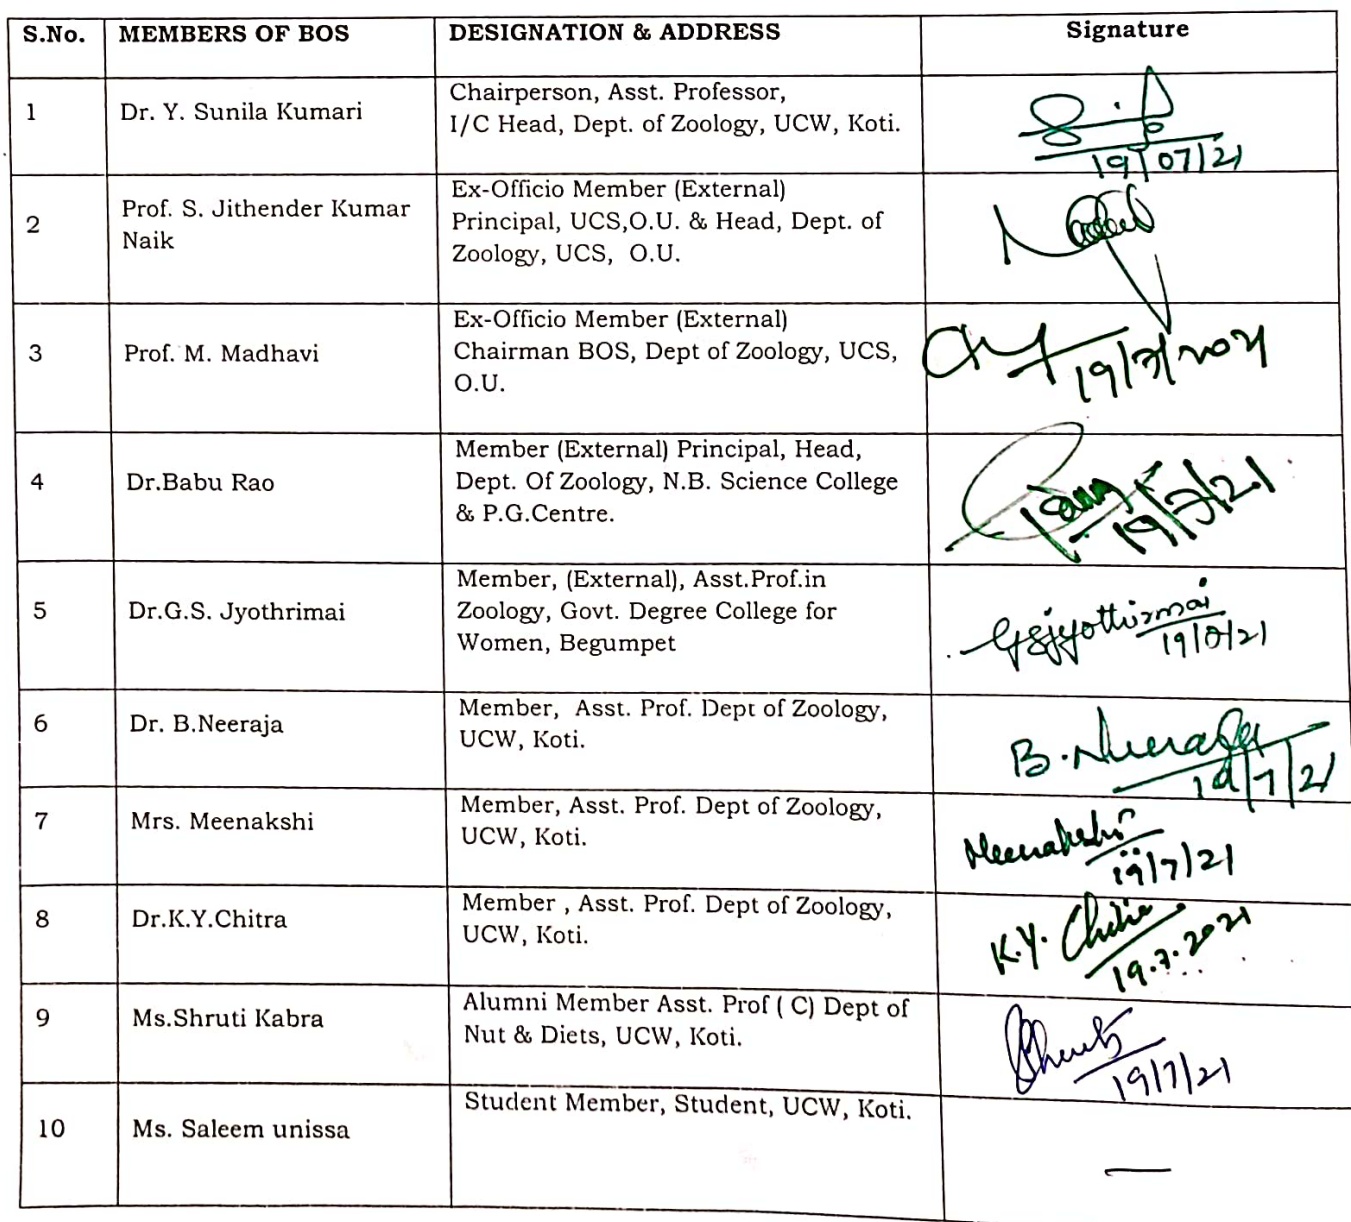 S.No. MEMBERS OF BOS DESIGNATION & ADDRESS Signature
1 Dr. Y. Sunila Kumari
Chairperson, Asst. Professor,
I/C Head, Dept. of Zoology, UCW, Koti.
19/07/21
2 Prof. S. Jithender Kumar
Naik
Ex-Officio Member (External)
Principal, UCS,O.U. & Head, Dept. of
Zoology, UCS, O.U.
3 Prof. M. Madhavi
Ex-Officio Member (External)
Chairman BOS, Dept of Zoology, UCS,
O.U.
19/7/2021
4 Dr.Babu Rao
Member (External) Principal, Head,
Dept. Of Zoology, N.B. Science College
& P.G.Centre.
19/7/21
5 Dr.G.S. Jyothrimai
Member, (External), Asst.Prof.in
Zoology, Govt. Degree College for
Women, Begumpet
GSjyothirmai
6 Dr. B.Neeraja
Member, Asst. Prof. Dept of Zoology,
UCW, Koti.
B.Neeraja
19/7/21
7 Mrs. Meenakshi
Member, Asst. Prof. Dept of Zoology,
UCW, Koti.
Meenakshi
19/7/21
8 Dr.K.Y.Chitra
Member , Asst. Prof. Dept of Zoology,
UCW, Koti.
K.Y. Chitra
19.7.2021
9 Ms.Shruti Kabra
Alumni Member Asst. Prof ( C) Dept of
Nut & Diets, UCW, Koti.
Shruti
19/7/21
10 Ms. Saleem unissa
Student Member, Student, UCW, Koti.
—